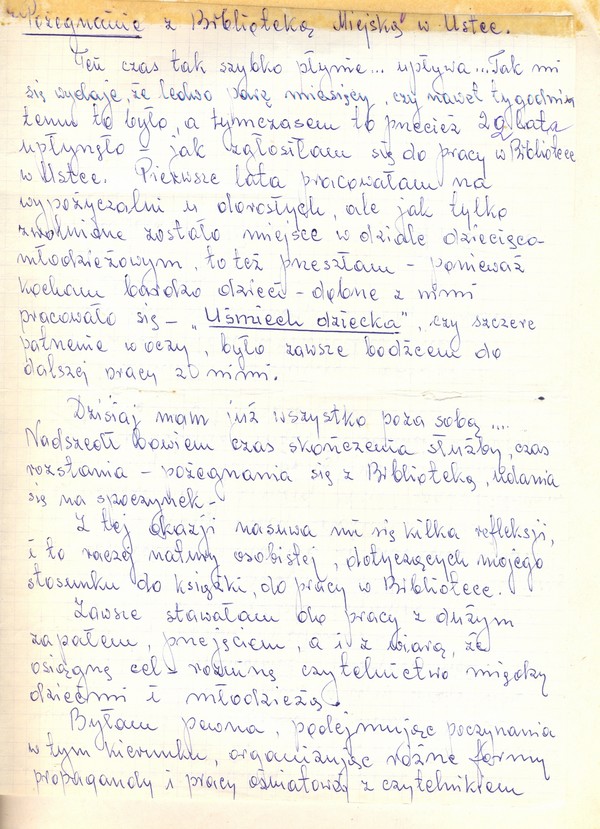 Pożegnanie z Biblioteką Miejską w Ustce.
Ten czas tak szybko płynie... upływa... Tak mi
się wydaje, że ledwo parę miesięcy, czy nawet tygodni
temu to było, a tymczasem to przecież 29 lata
upłynęło jak zgłosiłam się do pracy w Bibliotece
w Ustce. Pierwsze lata pracowałam na
wypożyczalni u dorosłych, ale jak tylko
zwolnione zostało miejsce w dziale dziecięco-
młodzieżowym, to też przeszłam - ponieważ
kocham bardzo dzieci - dobrze z nimi
pracowało się - „Uśmiech dziecka", czy szczere
patrzenie w oczy, było zawsze bodźcem do
dalszej pracy z nimi.
Dzisiaj mam już wszystko poza sobą ....
Nadszedł bowiem czas skończenia służby, czas
rozstania - pożegnania się z Biblioteką, udania
się na spoczynek -
Z tej okazji nasuwa mi się kilka refleksji,
i to raczej natury osobistej, dotyczących mojego
stosunku do książki, do pracy w Bibliotece.
Zawsze stawałam do pracy z dużym
zapałem, przejęciem, a i z wiarą, że
osiągnę cel - rozwinę czytelnictwo między
dziećmi i młodzieżą.
Byłam pewna, podejmując poczynania
w tym kierunku, organizując różne formy
propagandy i pracy oświatowej z czytelnikiem